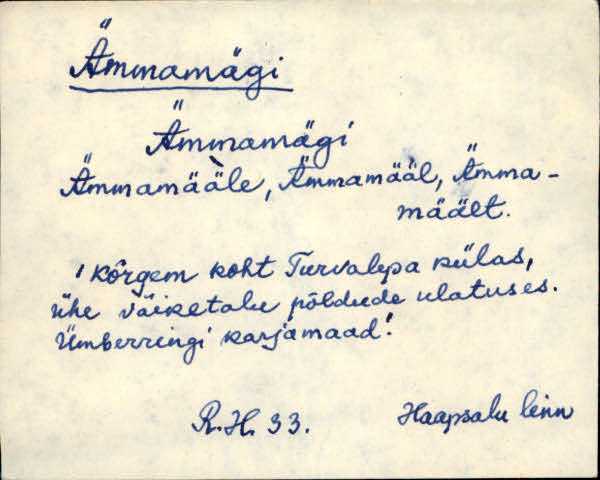 Ämmamägi
Ämmamägi
Ämmamä̀äle, Ämmamääl, Ämma-
mäält.
'kõrgem koht Turvalepa külas,
ühe väiketalu põldude ulatuses.
Ümberringi karjamaad.'
R.H. 33. Haapsalu linn